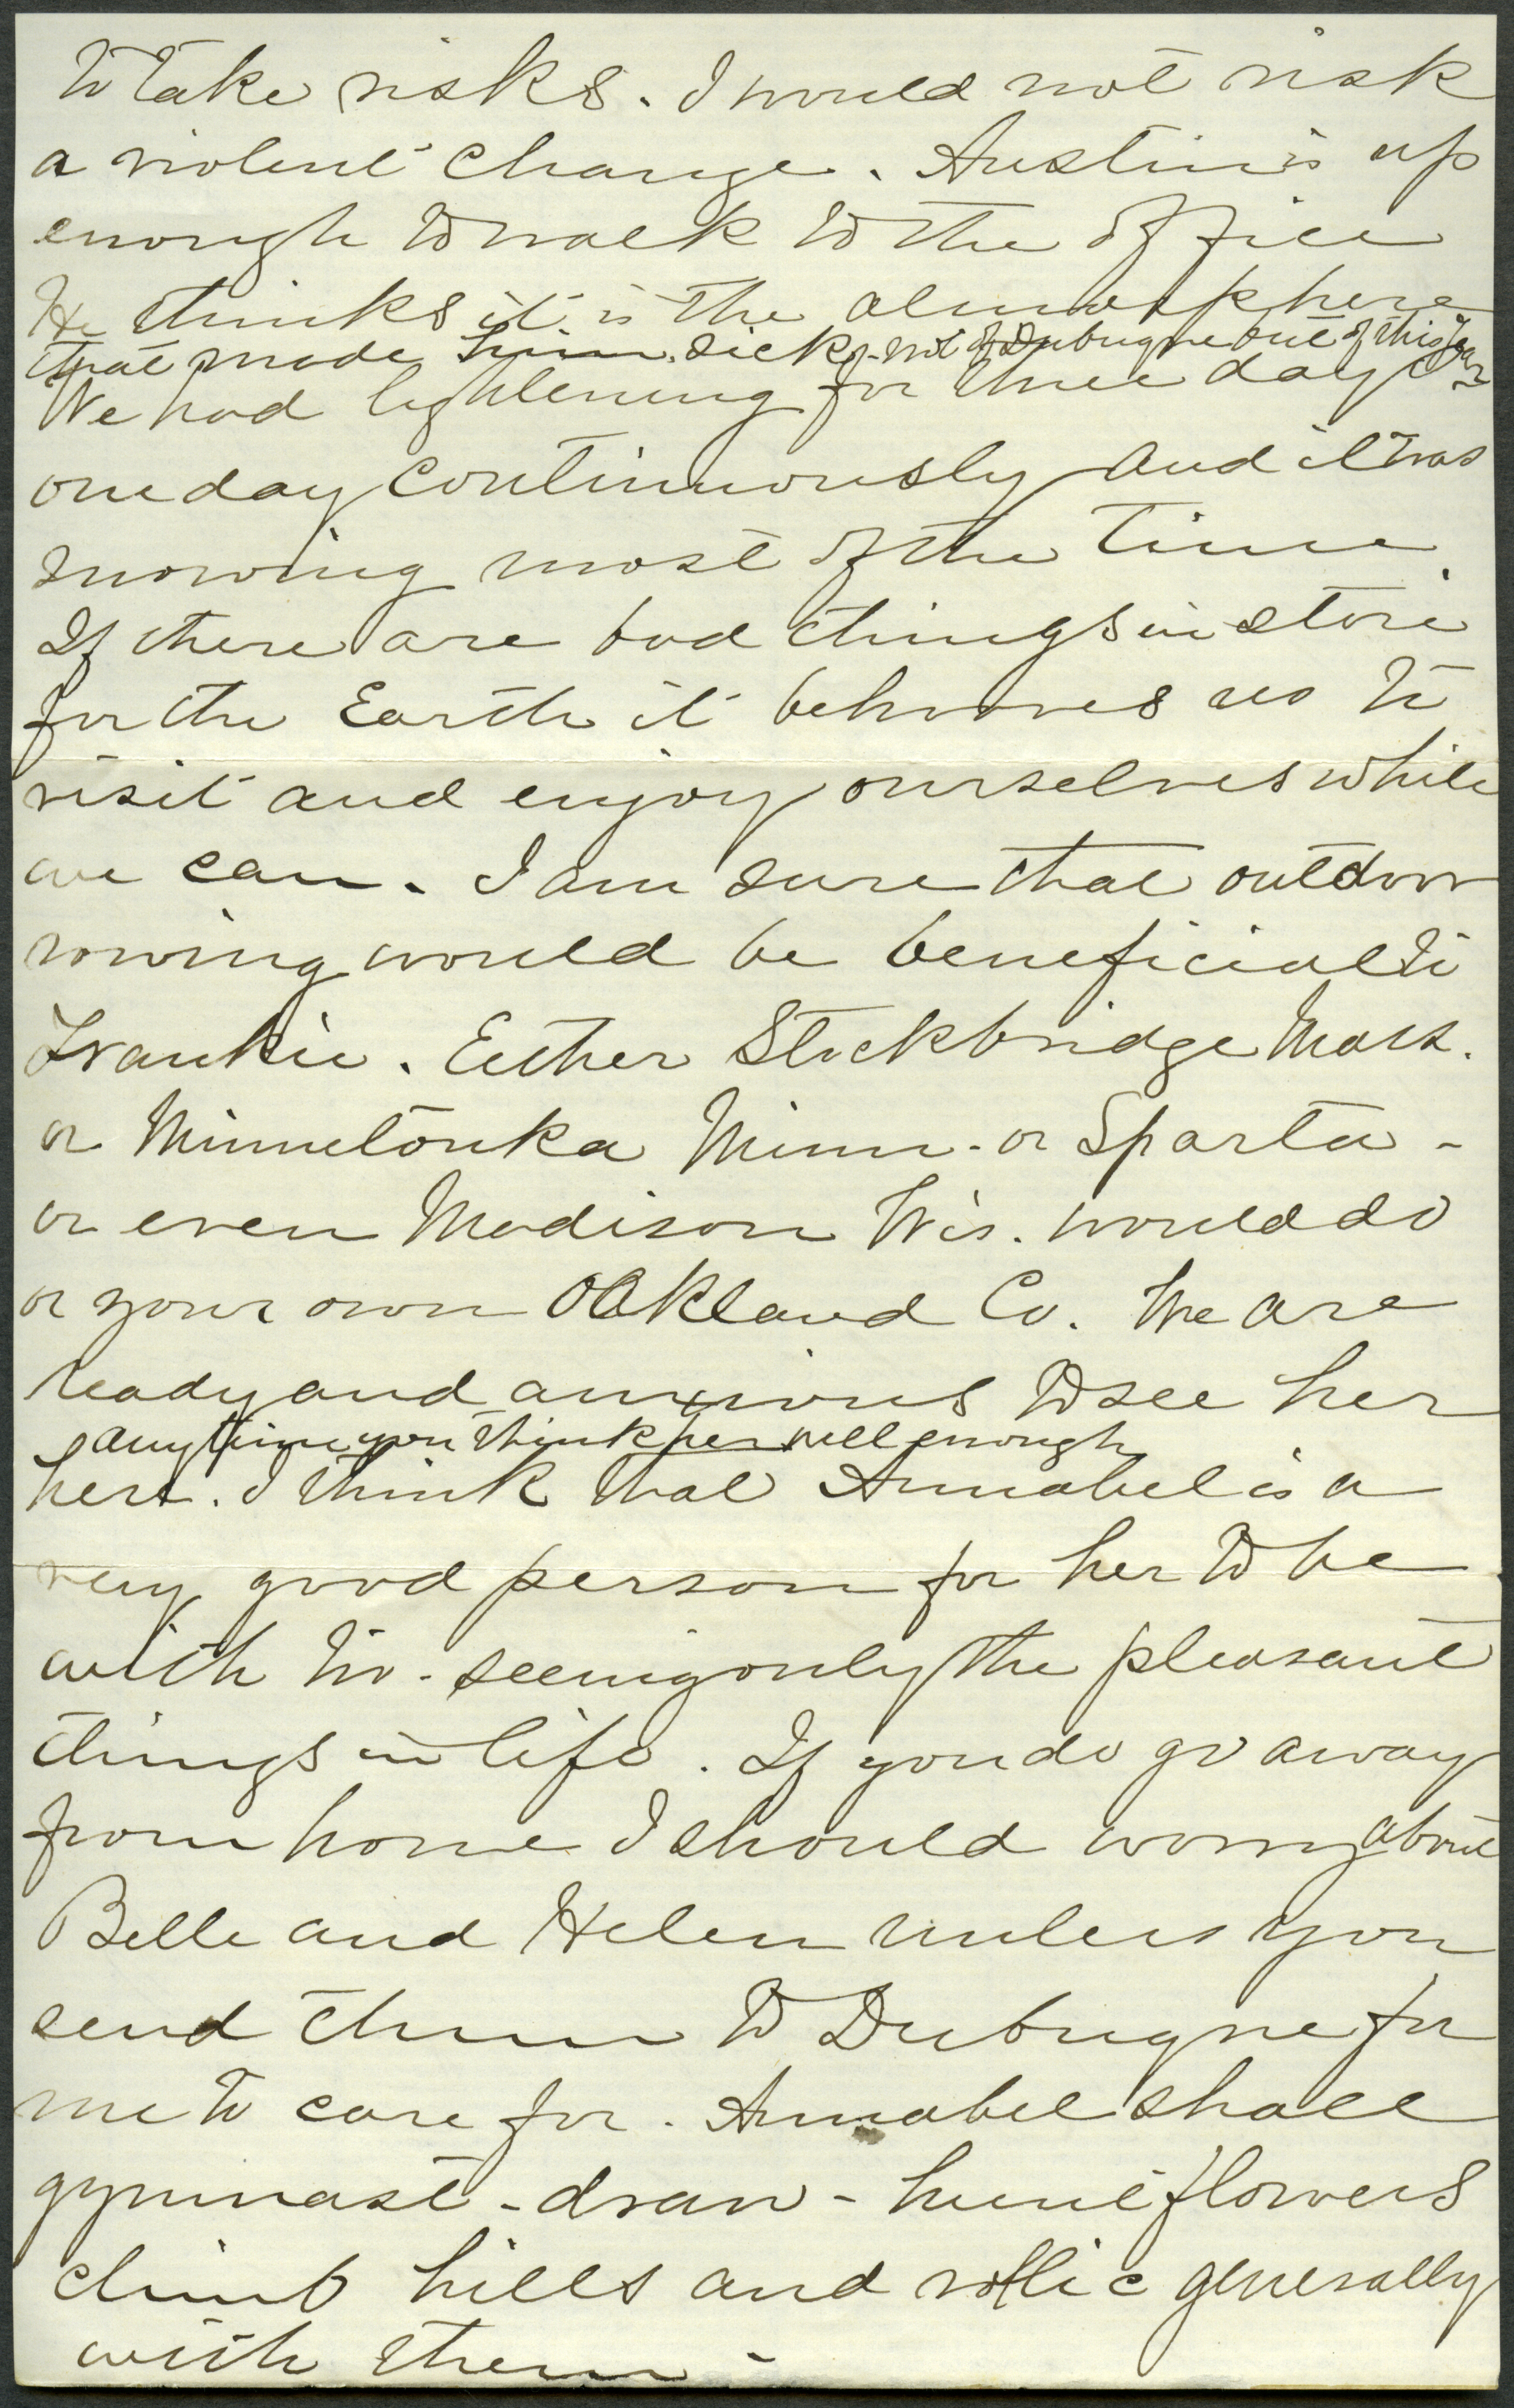 to take risks. I would not risk
a violent change. Austin is up
enough to walk to the office
He thinks it is the atmosphere
that made him sick, not of Dubuque but of this year
We had lightening for three days
one day continuously and it was
snowing most of the time.
If there are bad things in store
for the Earth it behooves us to
visit and enjoy ourselves while
we can. I am sure that outdoor
rowing would be beneficial to
Frankie. Either Stockbridge Mass.
or Minnetonka Minn - or Sparta -
or even Madison Wis. would do
or your own Oakland Co. We are
ready and anxious to see her
any time you think her well enough
here. I think that Annabel is a
very good person for her to be
with too - seeing only the pleasant
things in life. If you do go away
from home I should worry about
Belle and Helen unless you
send them to Dubuque for
me to care for. Annabel shall
gymnast - draw - hunt flowers
climb hills and rollic generally
with them -